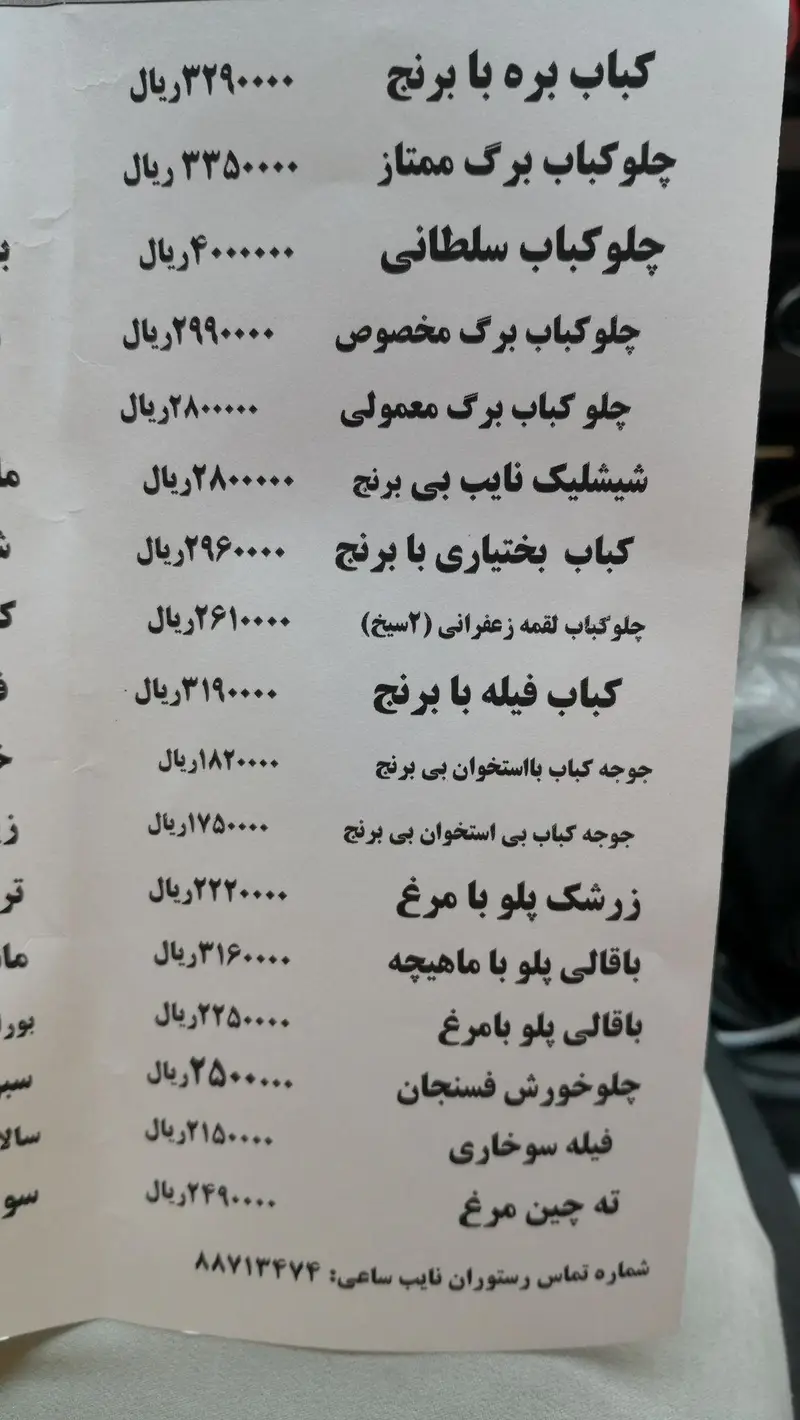 کباب بره با برنج ۳۲۹۰۰۰۰ریال
چلوکباب برگ ممتاز ۳۳۵۰۰۰۰ ریال
چلوکباب سلطانی ۴۰۰۰۰۰۰ریال
چلوکباب برگ مخصوص ۲۹۹۰۰۰۰ریال
چلو کباب برگ معمولی ۲۸۰۰۰۰۰ریال
شیشلیک نایب بی برنج ۲۸۰۰۰۰۰ریال
کباب بختیاری با برنج ۲۹۶۰۰۰۰ریال
چلوکباب لقمه زعفرانی (۲سیخ) ۲۶۱۰۰۰۰ریال
کباب فیله با برنج ۳۱۹۰۰۰۰ریال
جوجه کباب بااستخوان بی برنج ۱۸۲۰۰۰۰ریال
جوجه کباب بی استخوان بی برنج ۱۷۵۰۰۰۰ریال
زرشک پلو با مرغ ۲۲۲۰۰۰۰ریال
باقالی پلو با ماهیچه ۳۱۶۰۰۰۰ریال
باقالی پلو بامرغ ۲۲۵۰۰۰۰ریال
چلوخورش فسنجان ۲۵۰۰۰۰۰ریال
فیله سوخاری ۲۱۵۰۰۰۰ریال
ته چین مرغ ۲۴۹۰۰۰۰ریال
شماره تماس رستوران نایب ساعی: ۸۸۷۱۳۴۷۴